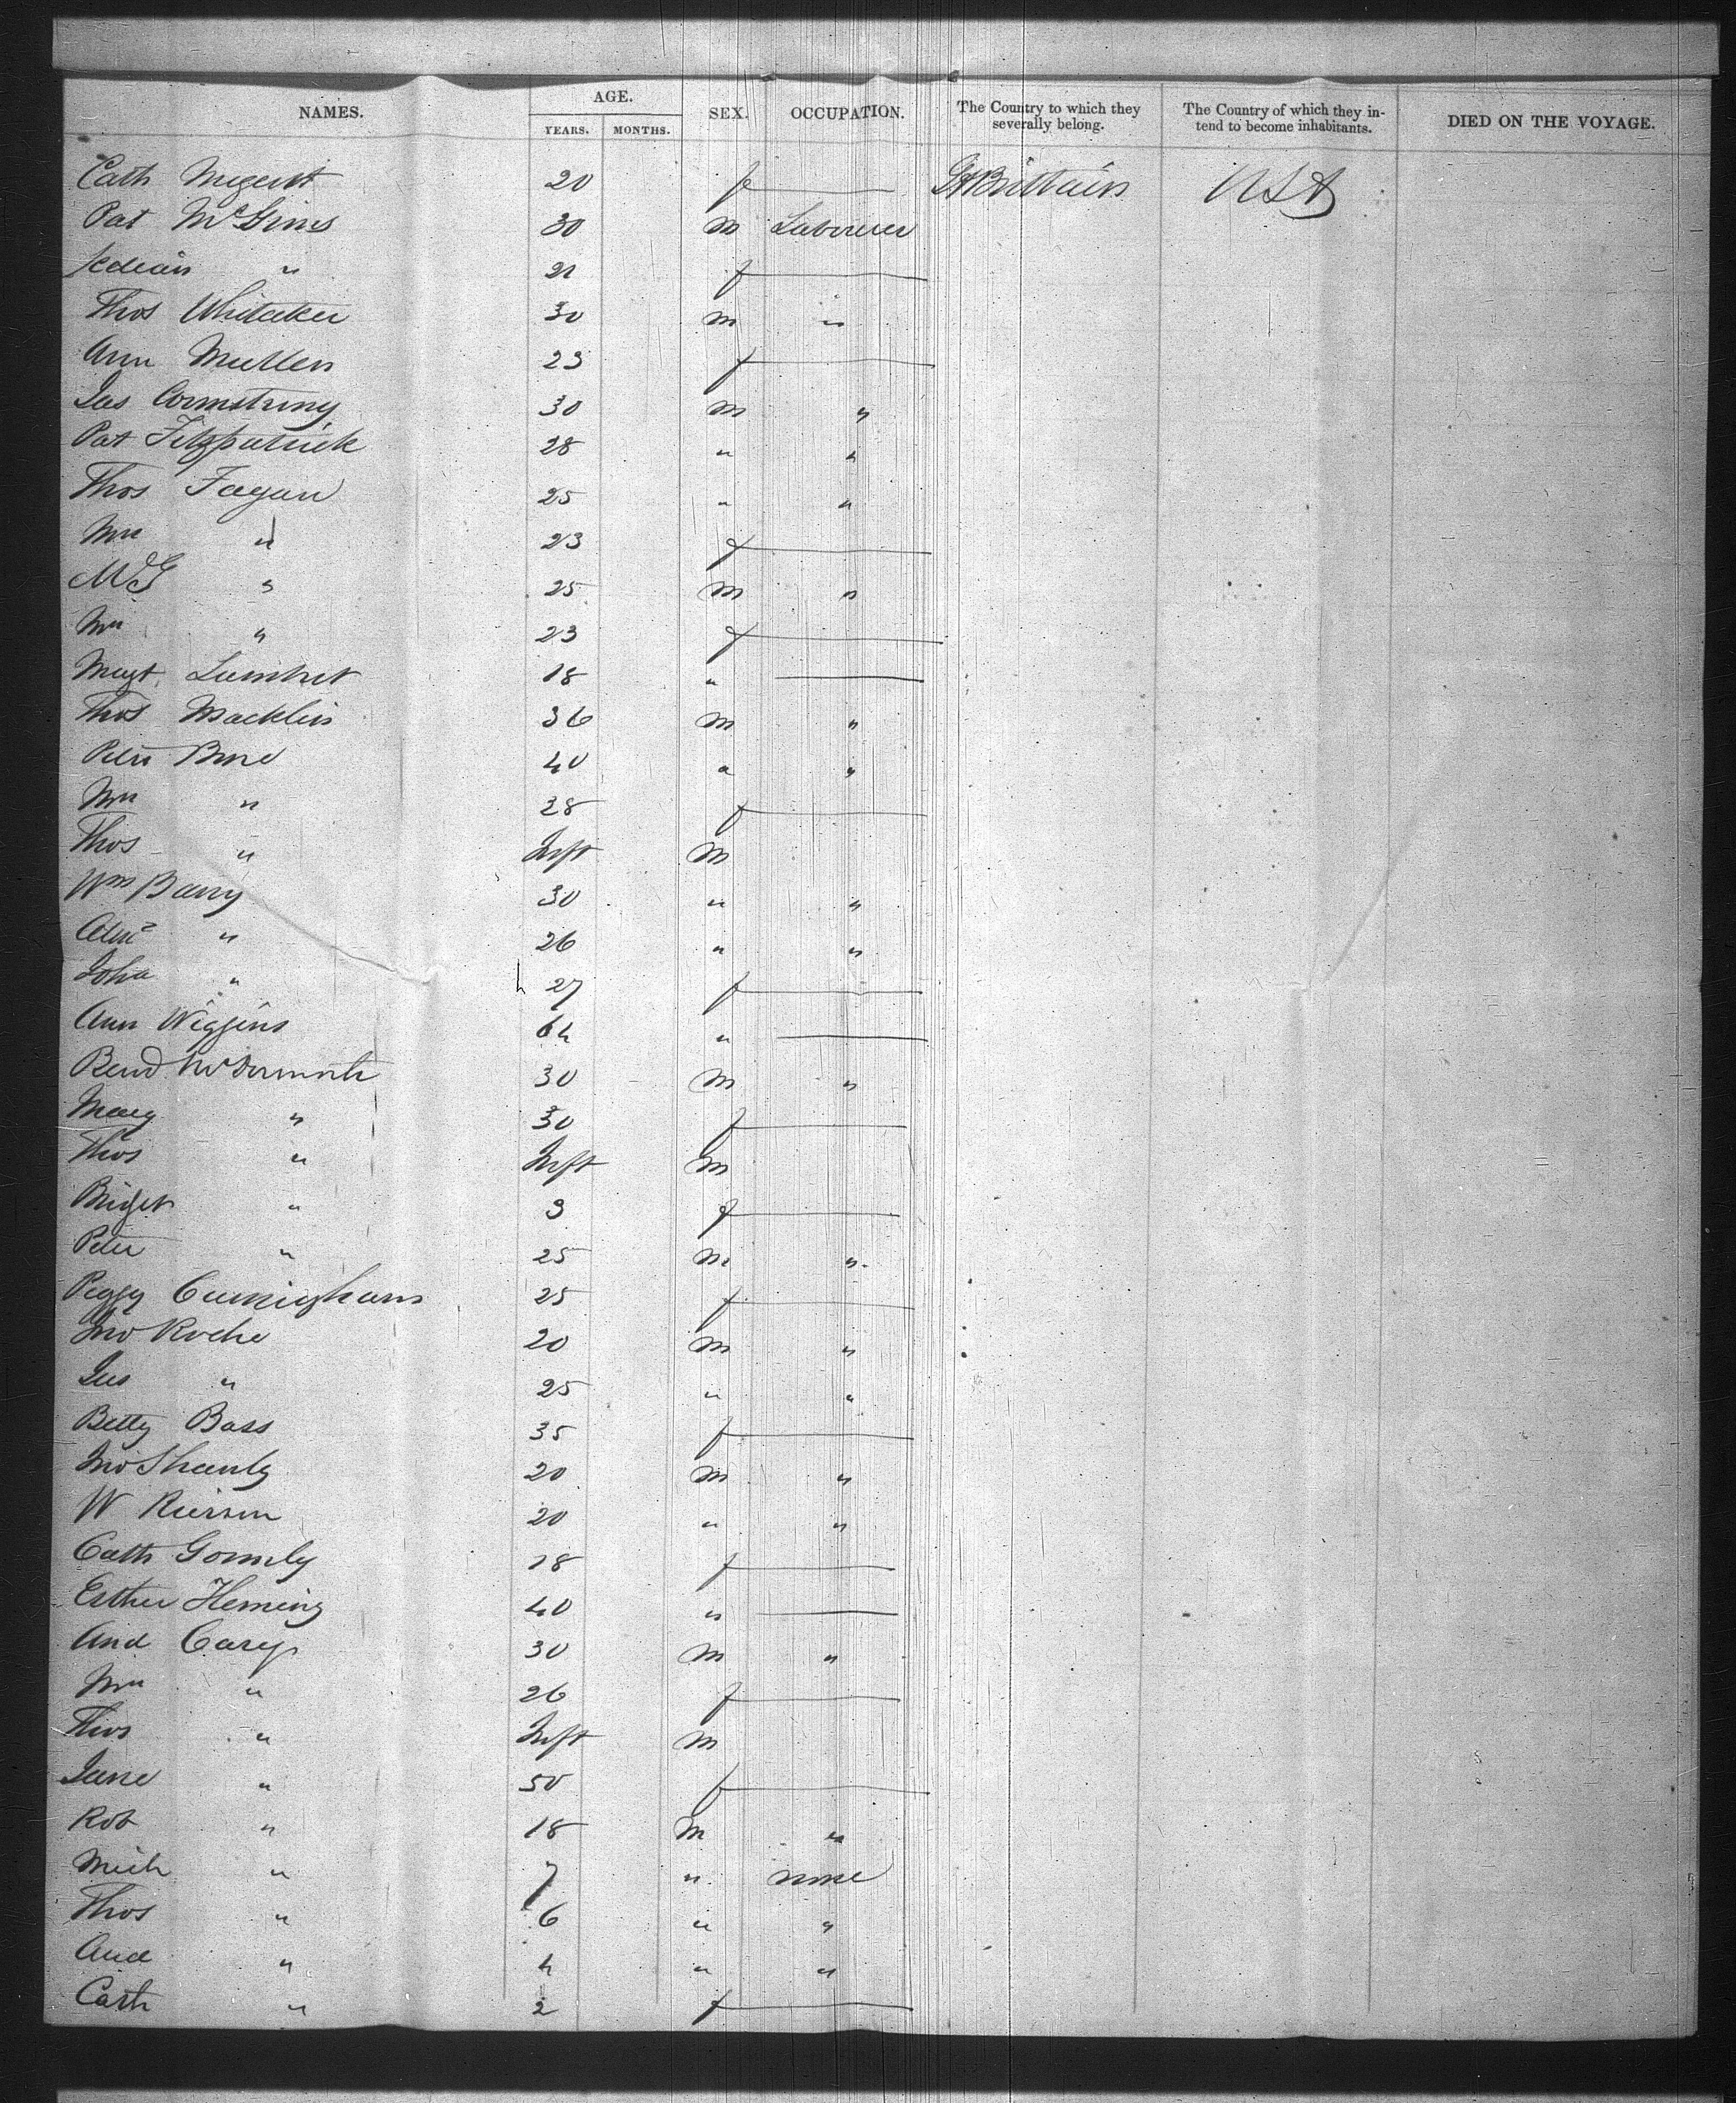 NAMES. AGE. YEARS. MONTHS. SEX. OCCUPATION. The Country to which they severally belong. The Country of which they intend to become inhabitants. DIED ON THE VOYAGE.
Cath 20 f Gt Brittain USA
Pat McGinns 30 m Laborer
" 21 f
Thos Whitaker 30 m "
Ann Mullen 23 f
Jas Armstrong 30 m "
Pat Fitzpatrick 28 " "
Thos Fagan 25 " "
Mrs " 23 f
" 25 m "
Mrs " 23 f
Magt Lambert 18 "
Thos Macklin 36 m "
Peter 40 " "
Mrs " 28 f
Thos " Inft M
Wm Barry 30 " "
" 26 " "
" 27 f
Ann Wiggins 64 "
McDermott 30 m "
Mary " 30 f
Thos " Inft m
Briget " 3 f
Peter " 25 m "
Peggy Cunnigham 25 f
Jno Roche 20 m "
Jas " 25 " "
Betty Bass 35 f
Jno Shanly 20 m "
W 20 " "
Cath Gormly 18 f
Esther Fleming 40 "
And Cary 30 m "
Mrs " 26 f
Thos " Inft m
Jane " 50 f
Rob " 18 m "
Mich " 7 " none
Thos " 6 " "
And " 4 " "
Cath " 2 f